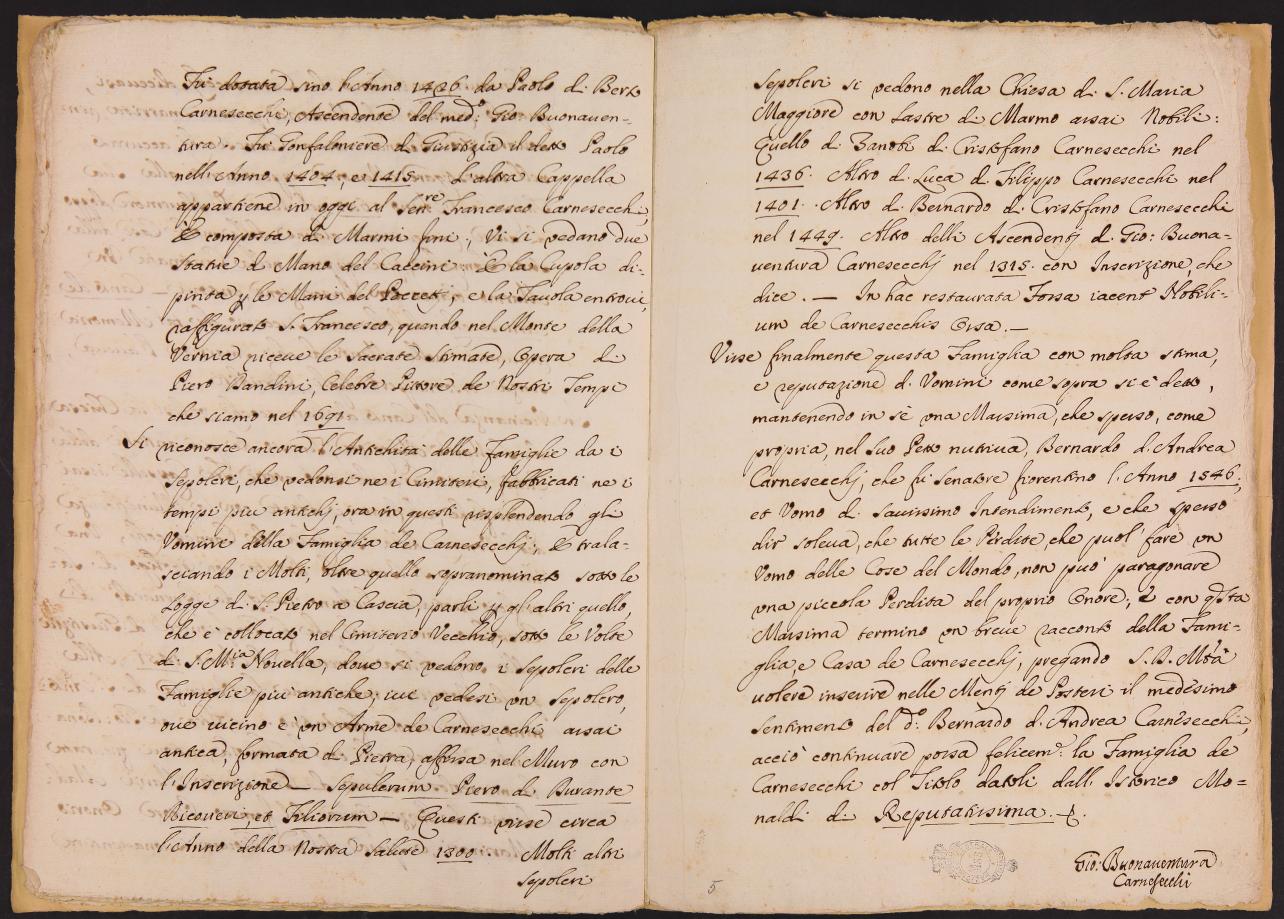 Fu dotata sino l'Anno 1426. da Paolo di Berto
Carnesecchi, Ascendente del med.º Gio: Buonaven-
tura. Fu Gonfaloniere di Giustizia il detto Paolo
nell'Anno 1404, e 1415. L'altra Cappella
appartiene in oggi al Sen.re Francesco Carnesecchi,
È composta di Marmi fini, Vi si vedano due
Statue di Mano del Caccini È la Cupola di-
pinta p le Mani del Poccetti, e la Tauola entroui,
raffigurato S. Francesco, quando nel Monte della
Vernia riceue le Sacrate Stimate, Opera di
Piero Dandini, Celebre Pittore de Nostri Tempi
che siamo nel 1691
Si riconosce ancora l'Antichità delle famiglie da i
Sepolcri, che vedonsi ne i Cimiteri, fabbricati ne i
tempi piu antichj, ora in questi risplendendo gli
Vomini della Famiglia de Carnesecchj, E trala-
sciando i Molti, oltre quello sopranominato sotto le
Logge di S. Pietro a Cascia, parli p gl'altri quello,
che è collocato nel Cimiterio Vecchio, sotto le Volte
di S. M.ia Nouella, doue si vedono, i Sepolcri delle
Famiglie piu antiche, iui vedesi un Sepolcro,
oue uicino è un Arme de Carnesecchi assai
antica, formata di Pietra, affissa nel Muro con
l'Inscrizione — Sepulcrum Piero di Durante
Ricoueri, et Filiorum — Questi visse circa
l'Anno della Nostra Salute 1300. Molti altri
Sepolcri
Sepolcri si vedono nella Chiesa di S. Maria
Maggiore con Lastre di Marmo assai Nobili:
Quello di Zanobi di Cristofano Carnesecchi nel
1436. Altro di Luca di Filippo Carnesecchi nel
1401. Altro di Bernardo di Cristofano Carnesecchi
nel 1449. Altro delli Ascendentj di Gio: Buona-
uentura Carnesecchj nel 1315. con Inscrizione, che
dice. — In hac restaurata Fossa iacent Nobili-
um de Carnesecchis Ossa. —
Visse finalmente questa Famiglia con molta stima,
e reputazione di Vomini come sopra si è detto,
mantenendo in sè una Massima, che spesso, come
propria, nel Suo Petto nutriua, Bernardo d'Andrea
Carnesecchj, che fù Senatore fiorentino l'Anno 1546.,
et Vomo di Sauissimo Intendimento, e che spesso
dir soleua, che tutte le Perdite, che puol' fare un
Vomo delle Cose del Mondo, non può paragonare
una piccola Perdita del proprio Onore; E con qsta
Massima termino un breue racconto della Fami-
glia, e Casa de Carnesecchj, pregando S. D. Mtà
uolere inserire nelle Mentj de Posteri il medèsimo
Sentimento del d.º Bernardo d'Andrea Carnesecchi,
acciò continuare possa felicem.e la Famiglia de
Carnesecchi col Titolo datoli dall'Istorico Mo-
naldi di Reputatissima.
Gio: Buonauentura
Carnesecchi
5